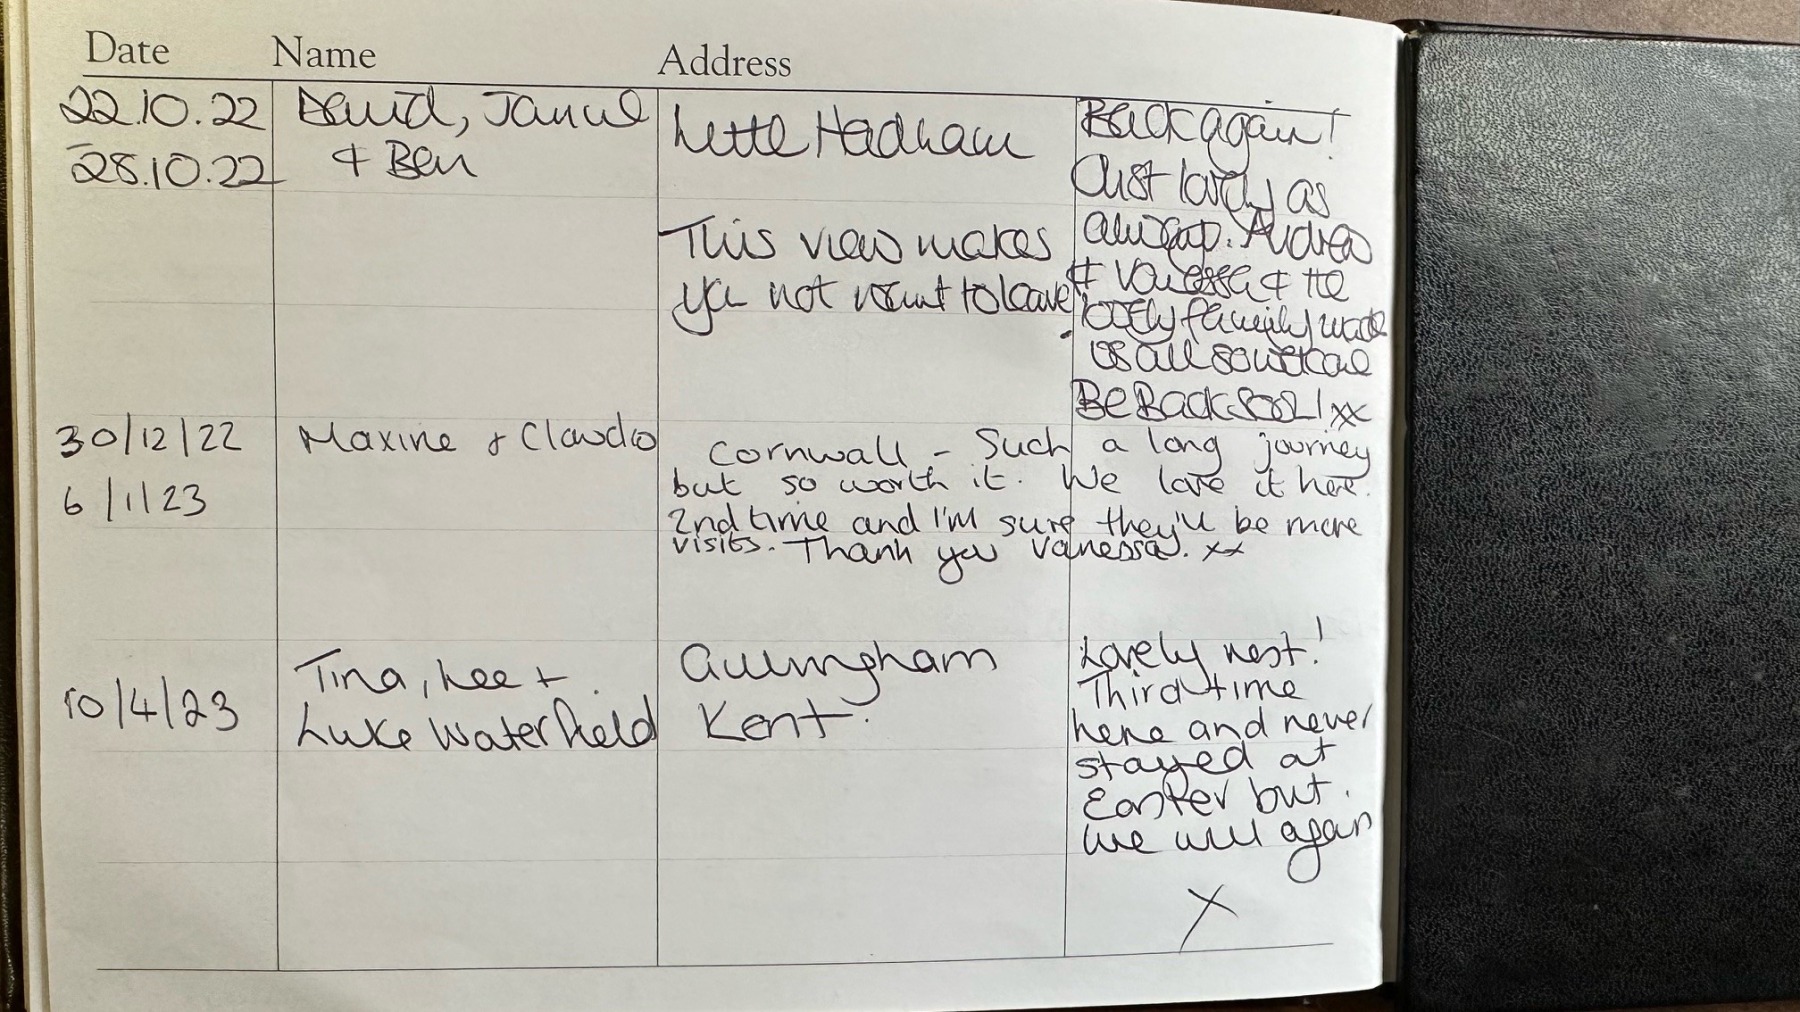 Date Name Address
22.10.22 David, & Ben Little Hadham
- 28.10.22
This view makes
you not want to leave
Back again!
Just lovely as
always. Andrea
& Vanessa & the
lovely family made
us all so welcome
Be Back soon! xx
30/12/22 Maxine & Claudio
6/1/23
Cornwall - Such a long journey
but so worth it. We love it here.
2nd time and I'm sure they'll be more
visits. Thank you Vanessa. xx
10/4/23
Tina, Lee +
Luke Waterfield
Gillingham
Kent.
Lovely rest!
Third time
here and never
stayed at
Easter but
we will again
X